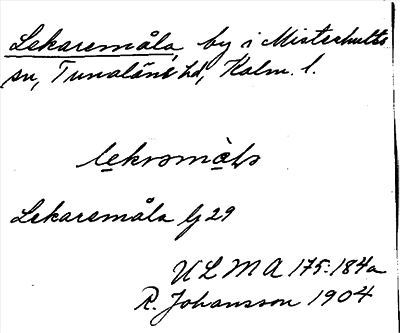 Lekaremåla, by i Misterhults
sn, Tunaläns hd, Kalm. l.
Lekaremåla lj 29
ULMA 175:184a
R. Johansson 1904